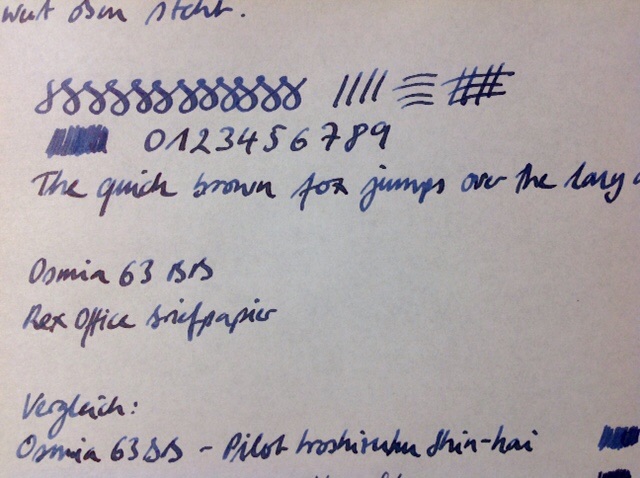 weit oben steht.
0123456789
The quick brown fox jumps over the lazy
Osmia 63 BB
Rex Office Briefpapier
Vergleich:
Osmia 63 BB - Pilot Iroshizuku Shin-kai